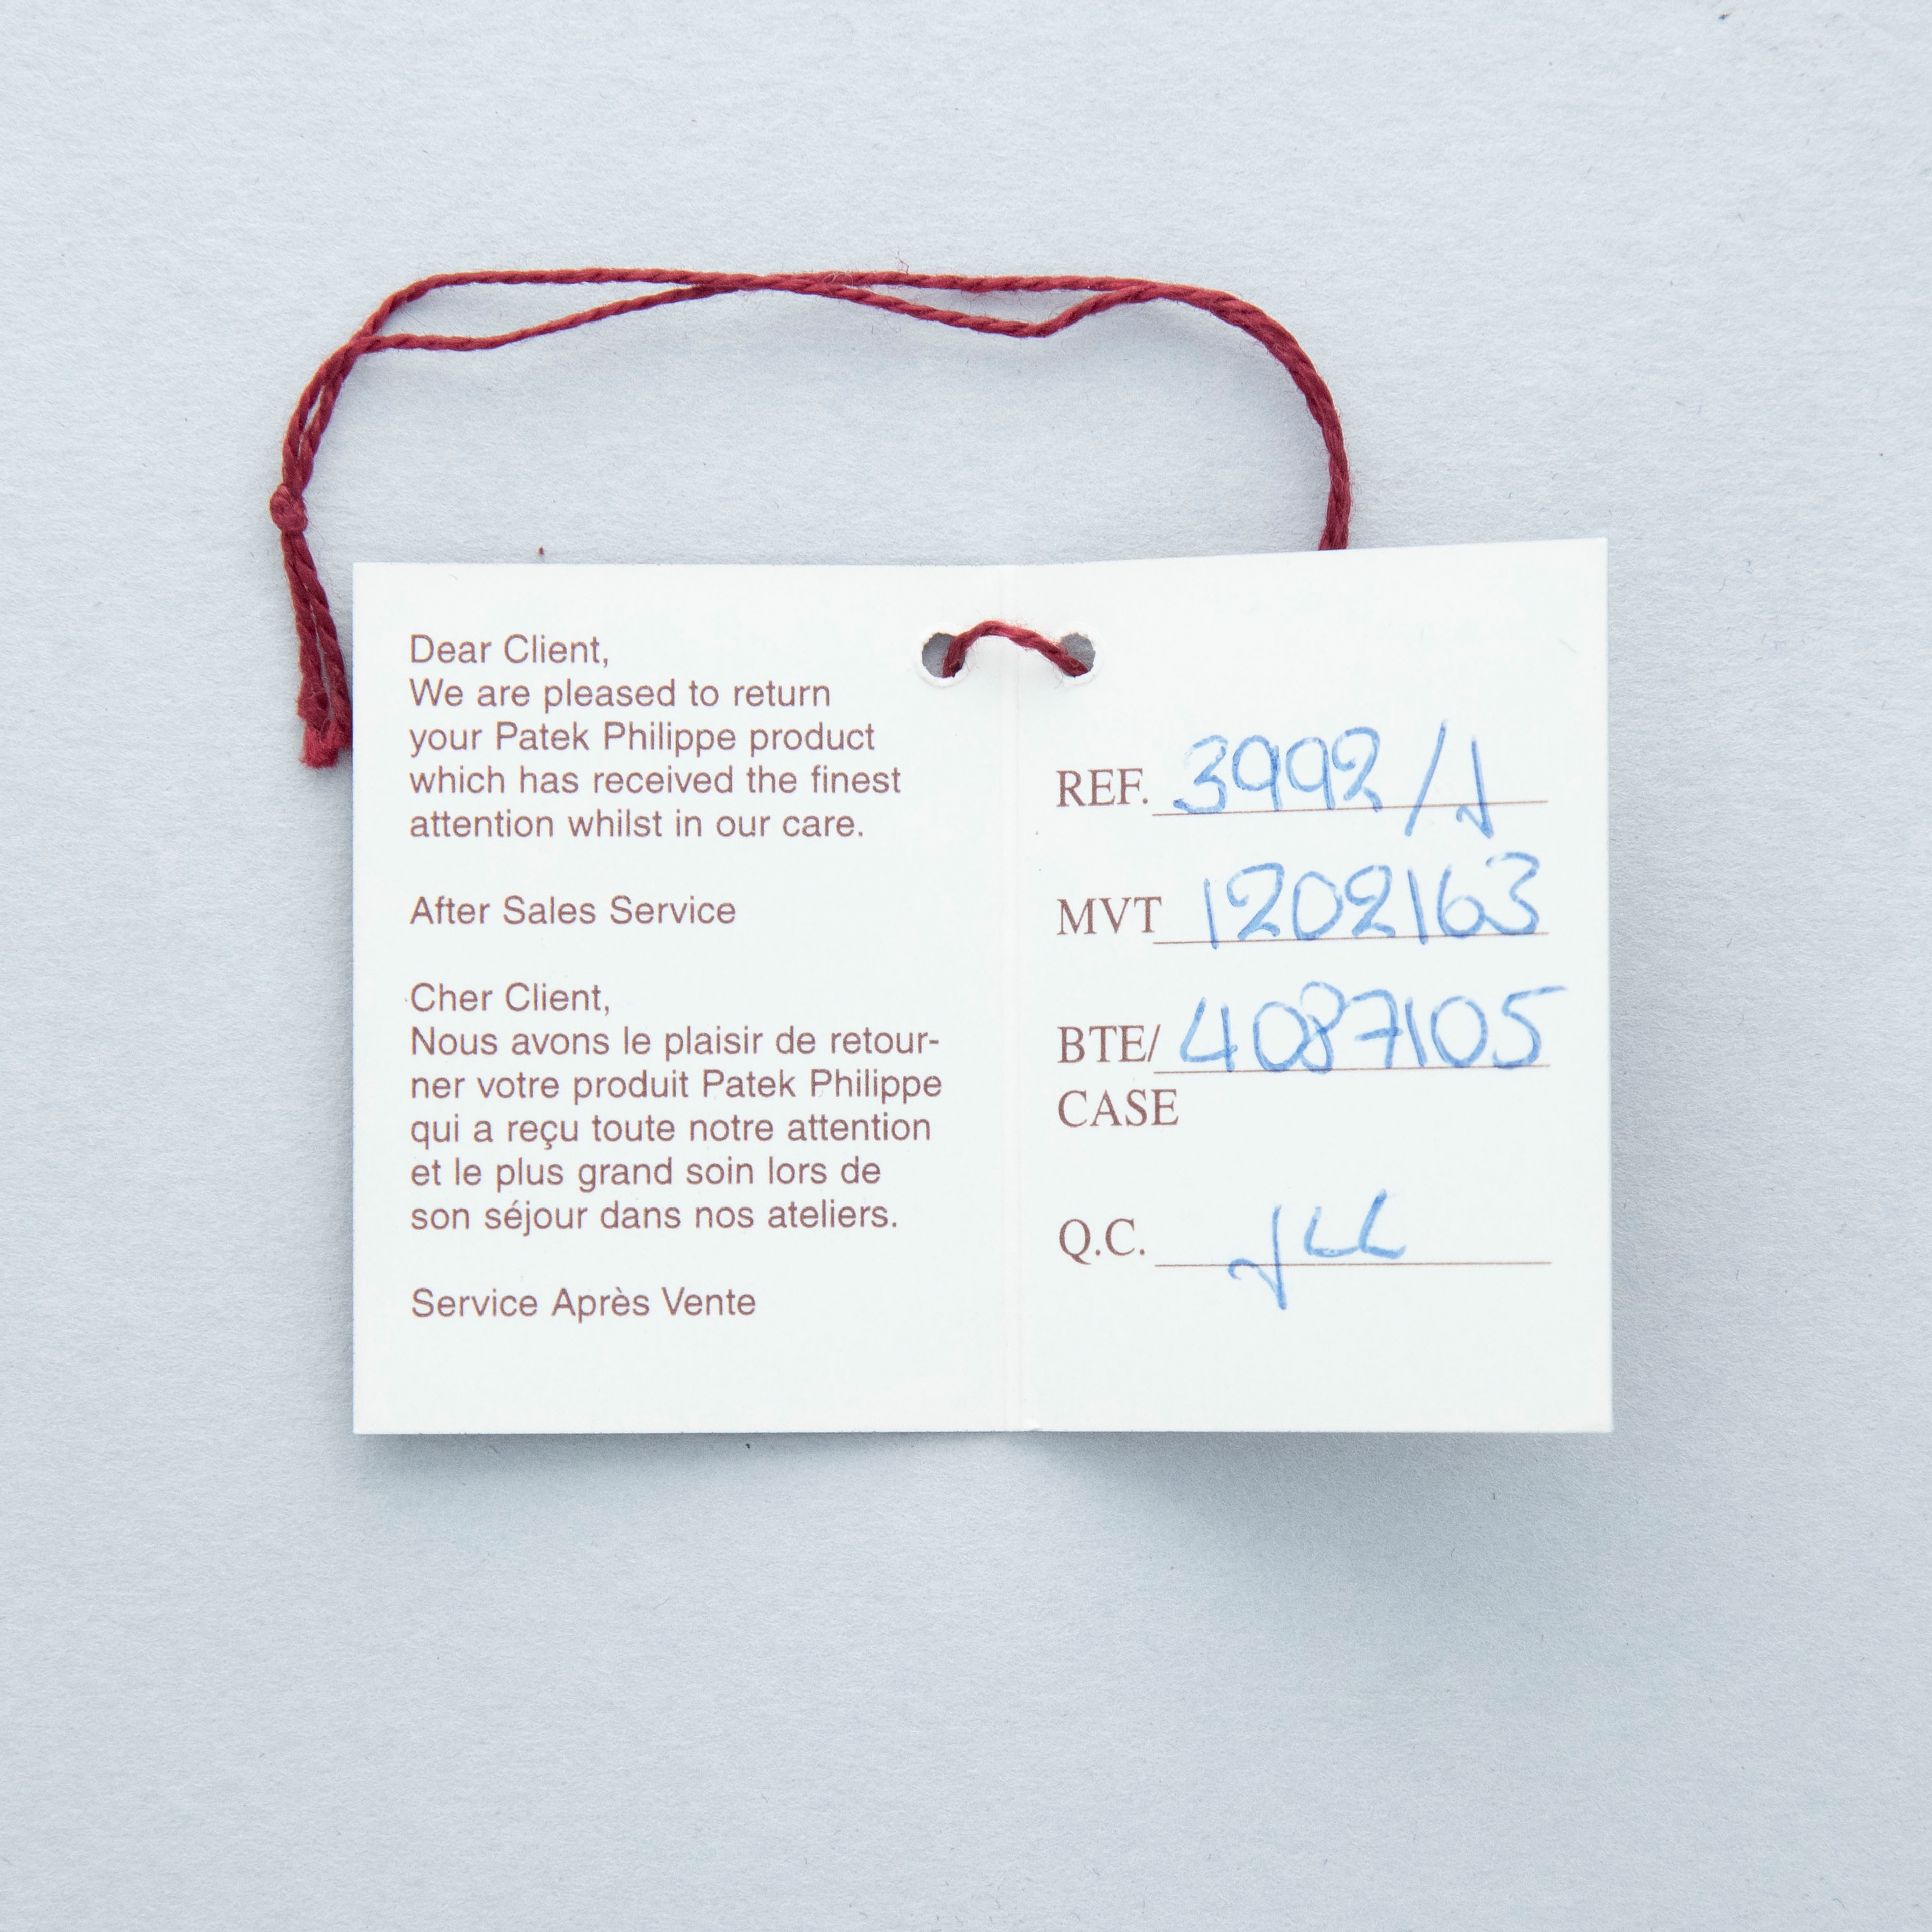 Dear Client,
We are pleased to return
your Patek Philippe product
which has received the finest
attention whilst in our care.
After Sales Service
Cher Client,
Nous avons le plaisir de retour-
ner votre produit Patek Philippe
qui a reçu toute notre attention
et le plus grand soin lors de
son séjour dans nos ateliers.
Service Après Vente
REF. 3992/J
MVT 1202163
BTE/ 4087105
CASE
Q.C.